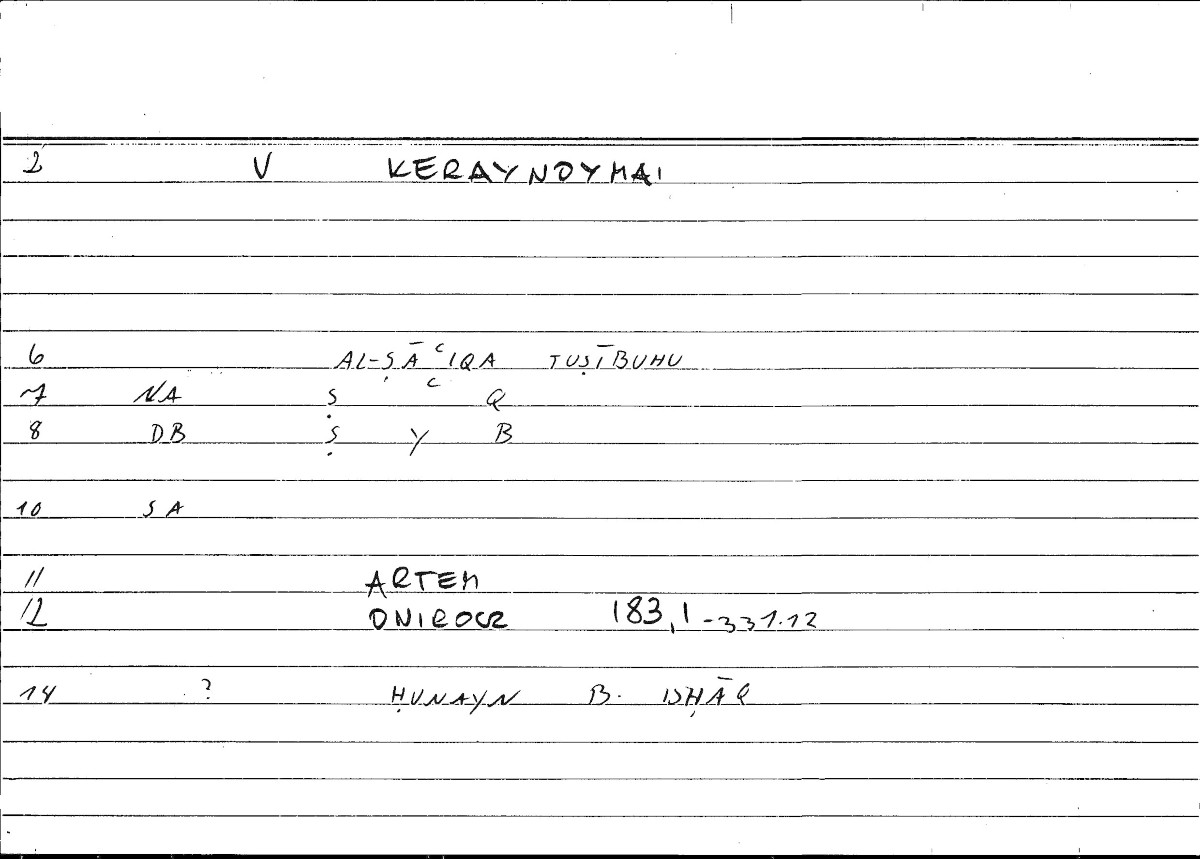 2 V KERAYNOYMAI
6 AL-ṢĀʿIQA TUṢĪBUHU
7 NA Ṣ ʿ Q
8 DB Ṣ Y B
10 SA
11 ARTEM
12 ONIROCR 183,1-331.12
14 ? ḤUNAYN B. ISḤĀQ